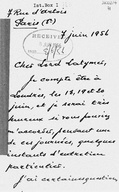 7 Rue d'Artois
Paris (8e)
7 juin 1956
RECEIVED
Cher Lord Salymes,
Je compte être à
Londres, le 18, 19 et 20
juin, et je serai très
heureux si vous pouviez
m'accorder, pendant une
de ces journées, quelques
instants d'entretien
particulier.
J'ai certaines questions